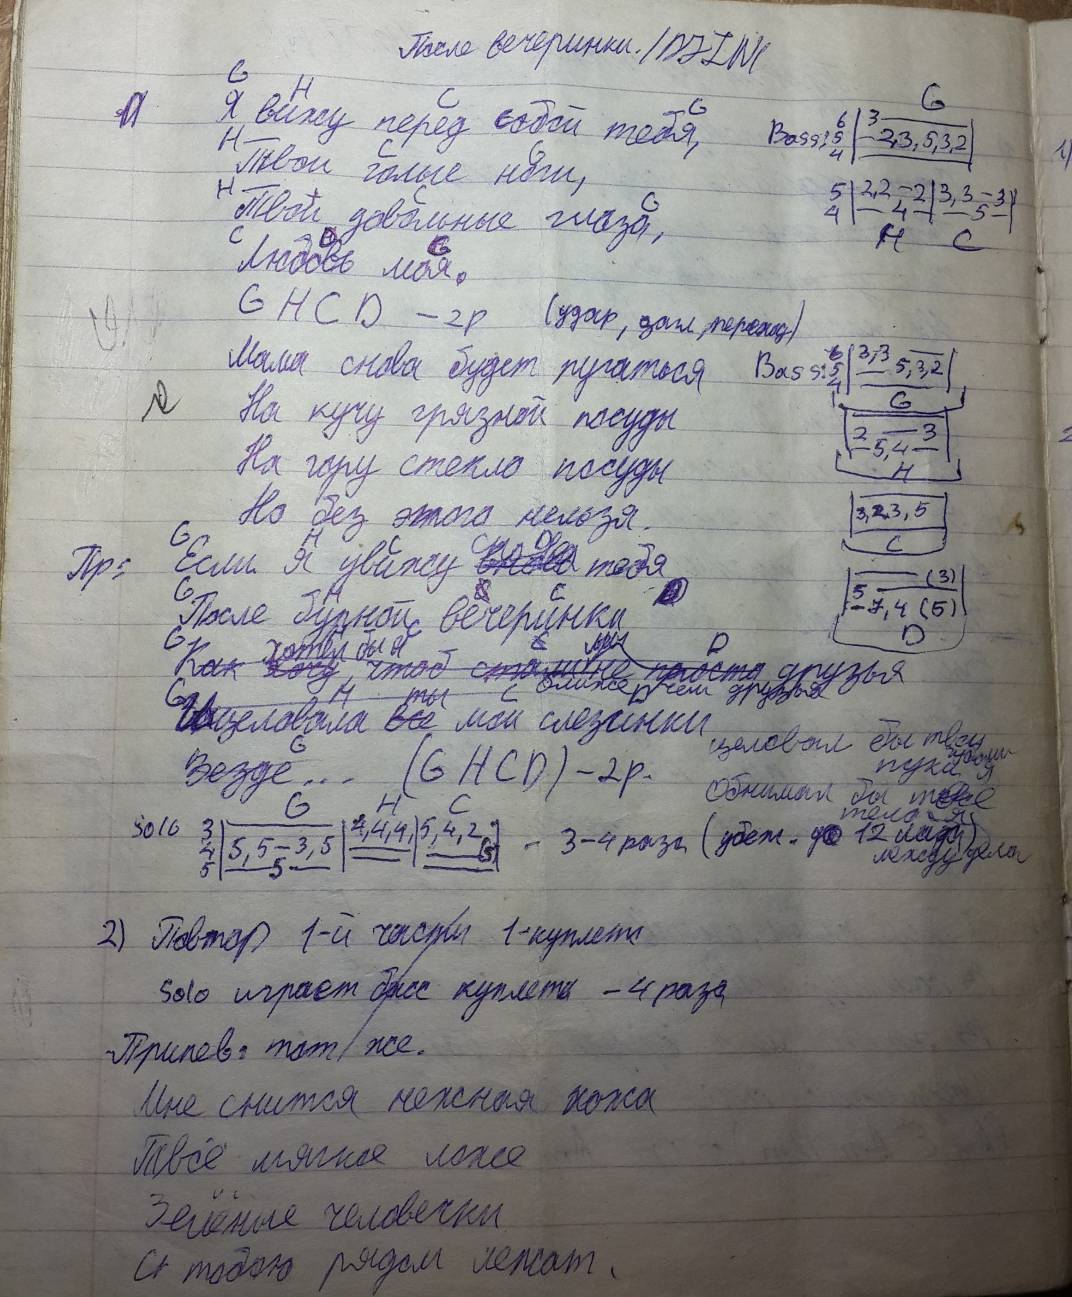 После вечеринки. / DJIM
G H C G
1) Я вижу перед собой тебя,
H C G
Твои голые ноги,
H C G
Твои довольные глаза,
C D G
Любовь моя.
G H C D - 2р (удар, загл, переход)
Bass: 6 5 4 | 3 - 2, 3, 5, 3, 2 | G
5 4 | 2, 2 - 2 - 4 - | 3, 3 - 3 - 5 - |
H C
2 Мама снова будет пугаться
На кучу грязной посуды
На гору стекло посуды
Но без этого нельзя.
Bass: 6 5 4 | 3, 3 5, 3, 2 |
G
2 - 5, 4 - 3
H
3, 2, 3, 5
C
5 - 7, 4 (5) (3)
D
Пр: G H C D
Если я увижу снова тебя
G H C D
После бурной вечеринки
G C D
Как хотел бы я, чтоб мы ближе чем друзья
стали не просто друзья
G H C D
Целовала ты мои слезинки
G
Везде... (G H C D) - 2р.
целовал бы твои губы
пука я
Обнимал бы твоё
тело я
между дела
G H C
Solo 3 4 5 | 5, 5 - 3, 5 5 | 4, 4, 4, | 5, 4, 2, (5) | - 3-4 раза (убеж. до 12 ладу)
2) Повтор 1-й части 1-куплета
Solo играет басс куплета - 4 раза
Припев: тот же.
Мне снится нежная кожа
Твоё мягкое ложе
Зелёные человечки
С тобою рядом лежат.